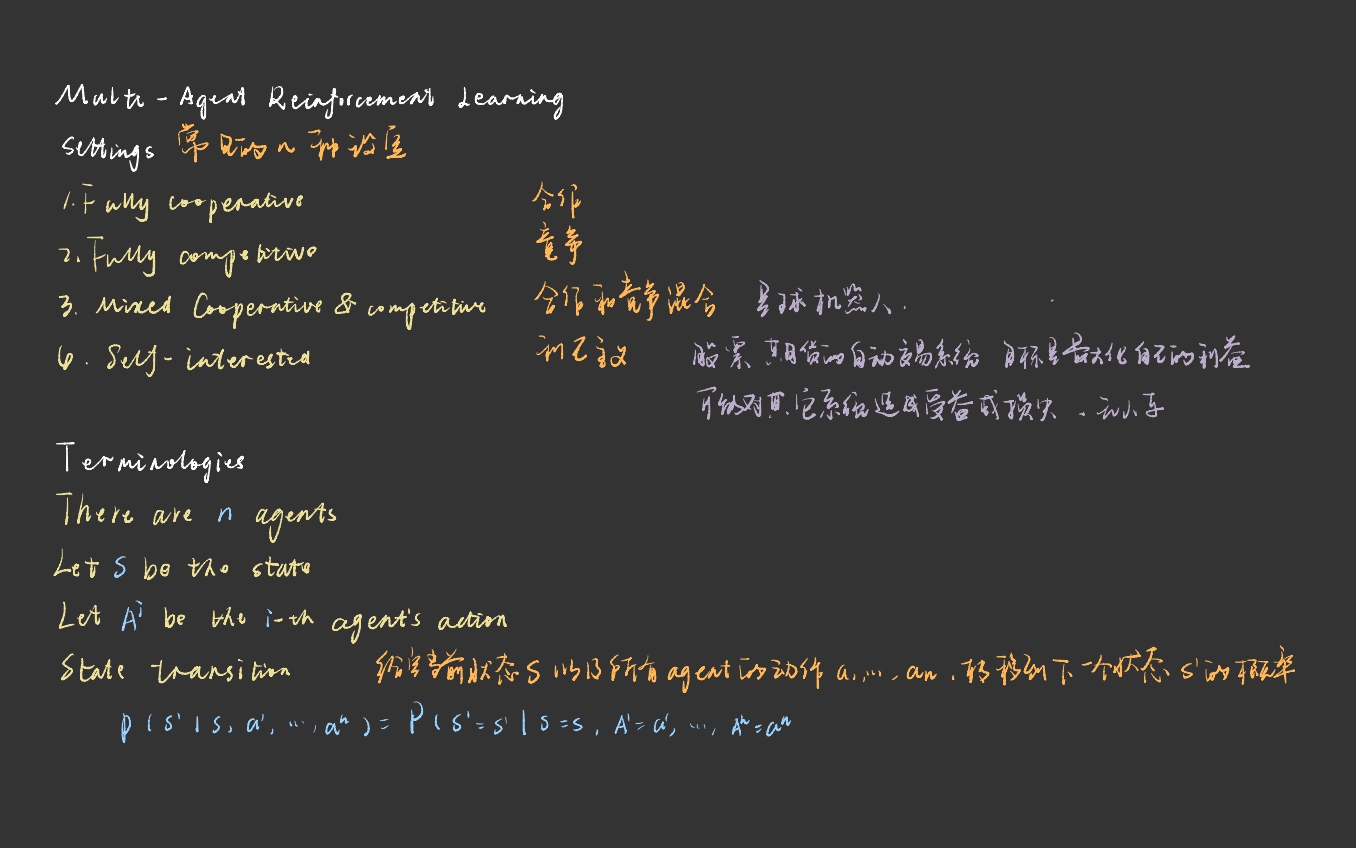 Multi-Agent Reinforcement Learning
Settings 常见的几种设定
1. Fully cooperative 合作
2. Fully competitive 竞争
3. Mixed Cooperative & competitive 合作和竞争混合 足球机器人.
6. Self-interested 利己主义 股票 期货的自动交易系统 目标是最大化自己的利益
可能对其它系统造成受益或损失. 无人车
Terminologies
There are n agents
Let S be the state
Let Aⁱ be the i-th agent's action
State transition 给定当前状态 S 以及所有 agent 的动作 a₁, ..., an, 转移到下一个状态 s' 的概率
p(s'|s, a¹, ..., aⁿ) = P(S'=s'|S=s, A¹=a¹, ..., Aⁿ=aⁿ